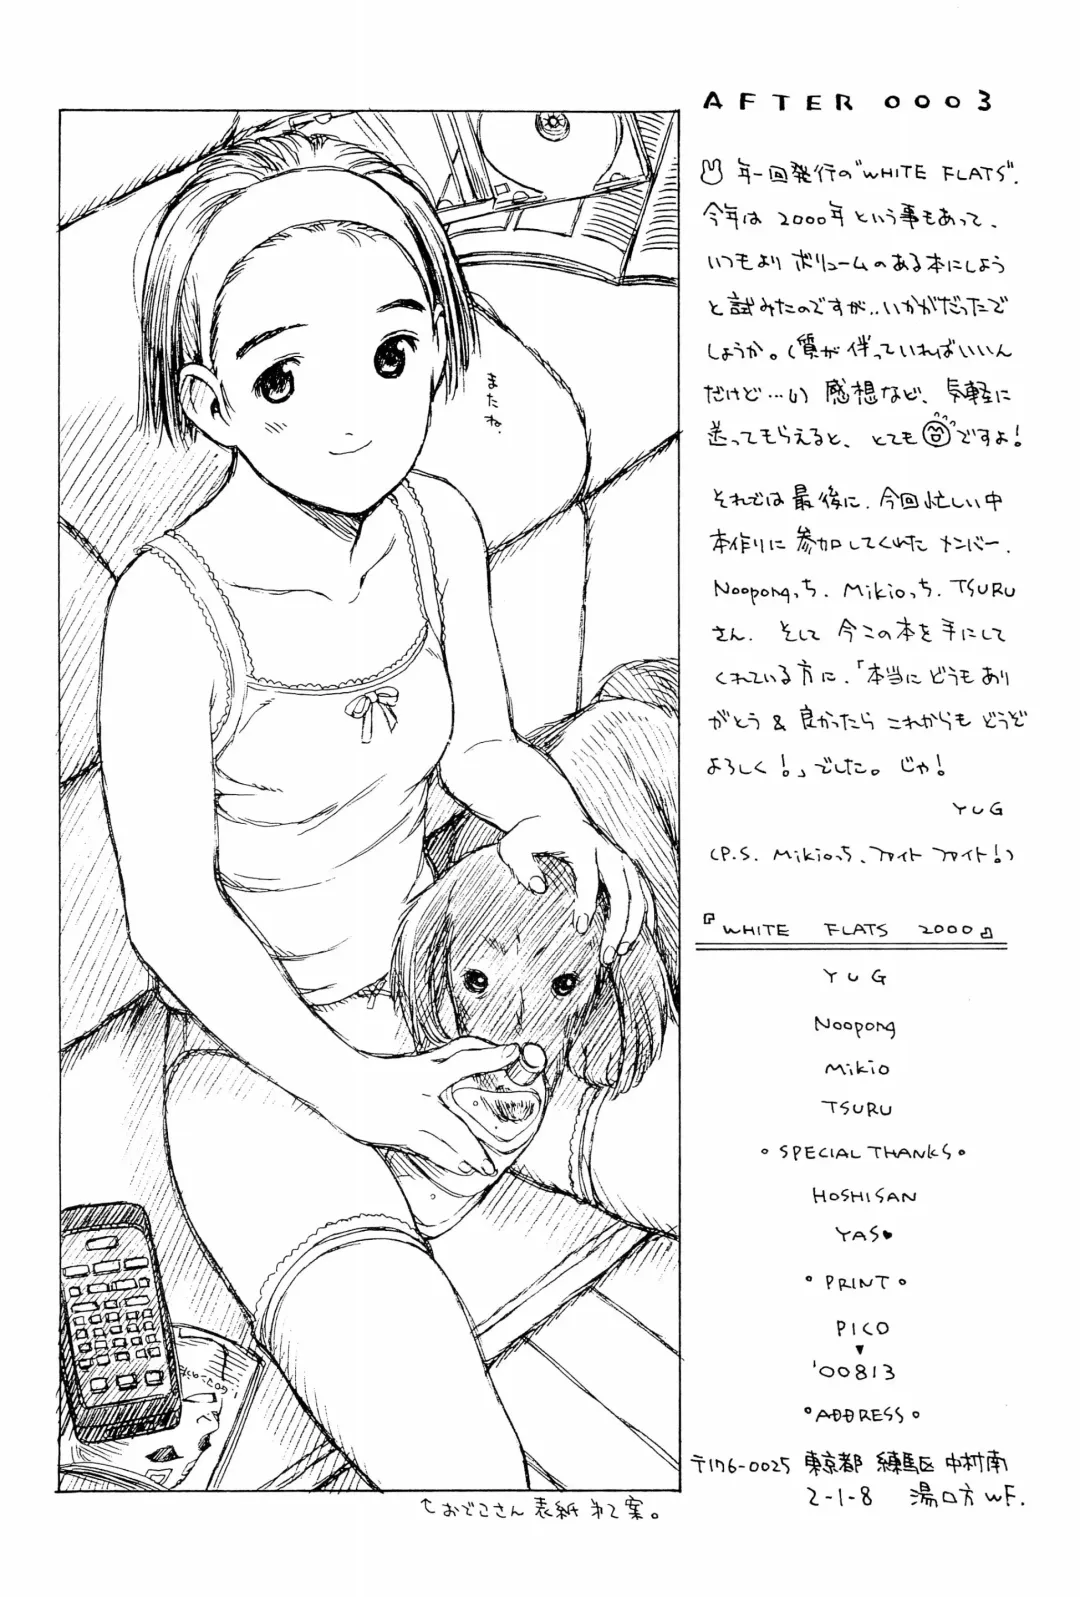 AFTER 0003
年一回発行の"WHITE FLATS".
今年は 2000年という事もあって、
いつもより ボリュームのある本にしよう
と試みたのですが‥いかがだったで
しょうか。(質が伴っていればいいん
だけど…。) 感想など、気軽に
送ってもらえると、とても ですよ!
それでは最後に、今回忙しい中
本作りに参加してくれた メンバー、
Noopongっち、Mikioっち、TSURU
さん、そして 今この本を手にして
くれている方に、「本当に どうもあり
がとう & 良かったら これからも どうぞ
よろしく!」でした。じゃ!
YUG
(P.S. Mikioっち、ファイト ファイト!)
『WHITE FLATS 2000』
YUG
Noopong
Mikio
TSURU
。SPECIAL THANKS。
HOSHISAN
YAS♥
。PRINT。
PICO
▼
'00813
。ADDRESS。
〒176-0025 東京都 練馬区 中村南
2-1-8 湯口方 WF.
またね。
↑おでこさん 表紙 案。